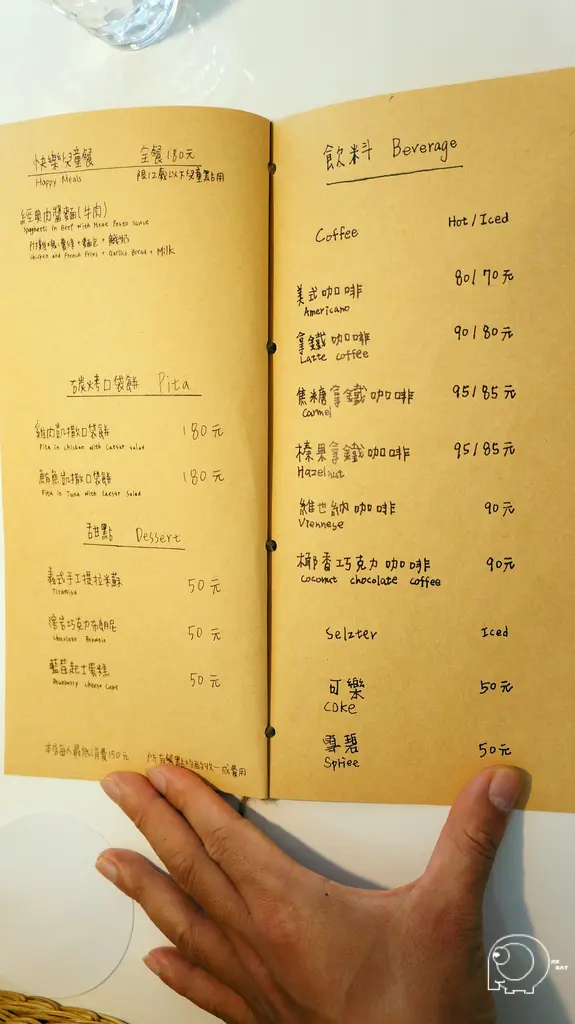 快樂兒童餐 全餐180元
Happy Meals 限12歲以下兒童點用
經典肉醬麵(牛肉)
Spaghetti in Beef with Meat Pesto Sauce
炸雞+脆薯條+麵包+鮮奶
Chicken and French Fries + Garlics Bread + Milk
碳烤口袋餅 Pita
雞肉凱撒口袋餅 180元
Pita in chicken with Caesar salad
鮪魚凱撒口袋餅 180元
Pita in Tuna with Caesar Salad
甜點 Dessert
義式手工提拉米蘇 50元
Tiramisu
溶岩巧克力布朗尼 50元
Chocolate Brownie
藍莓起士蛋糕 50元
Blueberry cheese cake
本店每人最低消費150元 所有餐點均酌收一成費用
飲料 Beverage
Coffee Hot/Iced
美式咖啡 80/70元
Americano
拿鐵咖啡 90/80元
Latte coffee
焦糖拿鐵咖啡 95/85元
Carmel
榛果拿鐵咖啡 95/85元
Hazelnut
維也納咖啡 90元
Viennese
椰香巧克力咖啡 90元
Coconut chocolate coffee
Selzter Iced
可樂 50元
Coke
雪碧 50元
Spriee